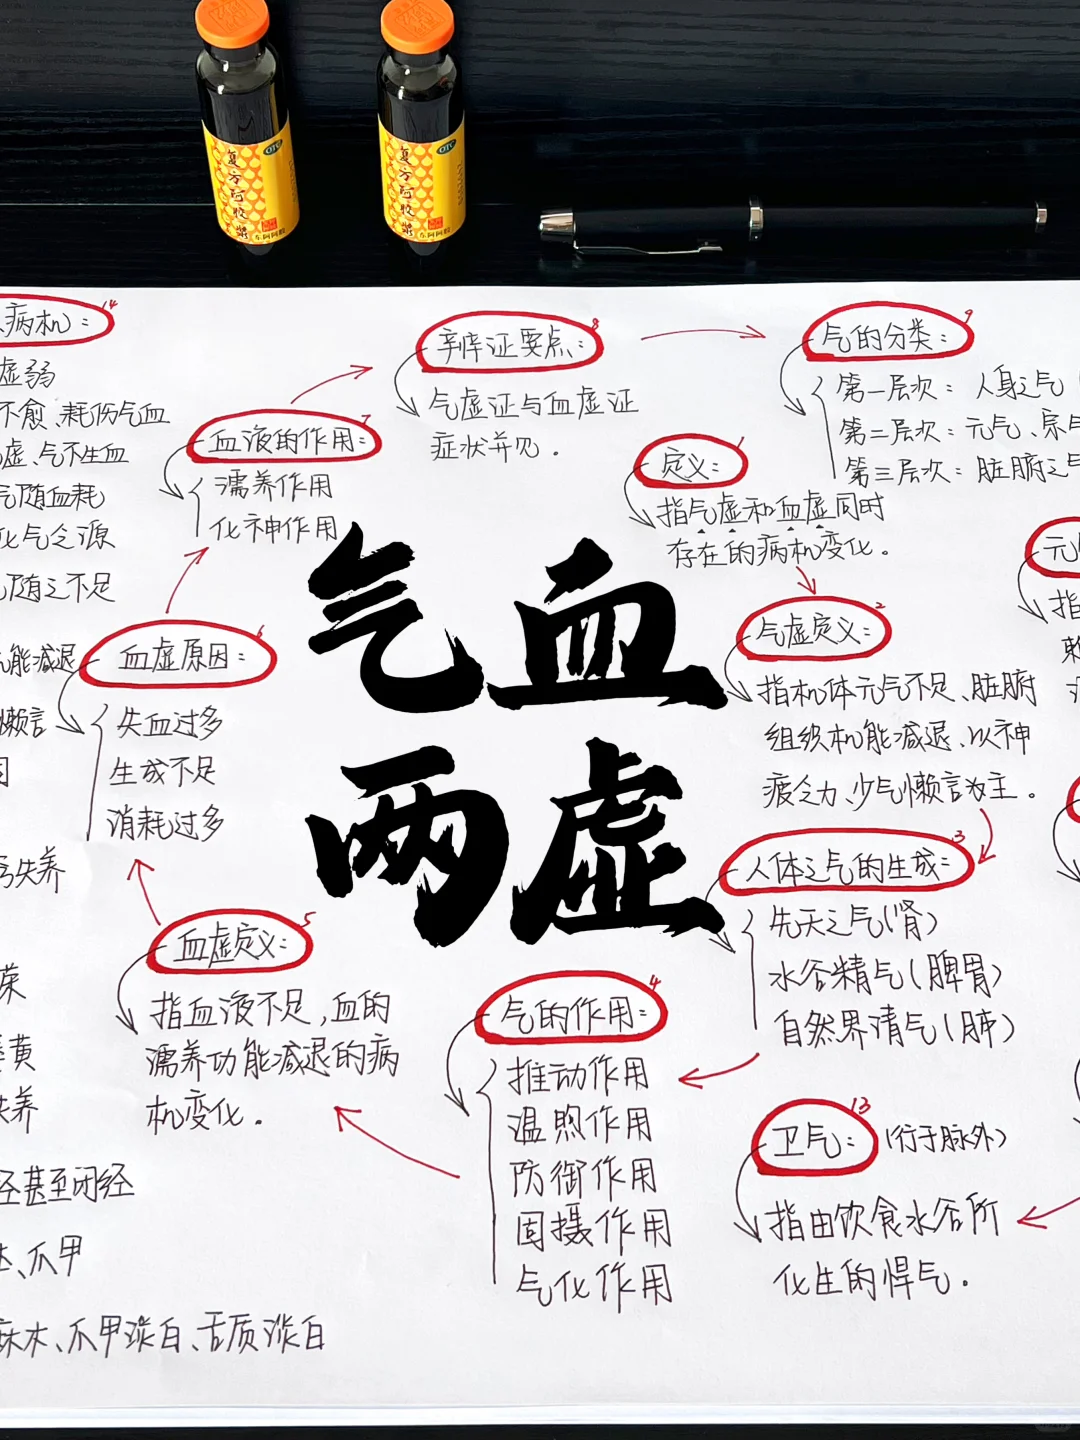 复方阿胶浆
OTC
东阿阿胶
复方阿胶浆
OTC
东阿阿胶
气血
两虚
1
定义:
指气虚和血虚同时
存在的病机变化。
2
气虚定义:
指机体元气不足、脏腑
组织机能减退、以神
疲乏力、少气懒言为主。
3
人体之气的生成:
先天之气(肾)
水谷精气(脾胃)
自然界清气(肺)
4
气的作用:
推动作用
温煦作用
防御作用
固摄作用
气化作用
5
血虚定义:
指血液不足,血的
濡养功能减退的病
机变化。
6
血虚原因:
失血过多
生成不足
消耗过多
7
血液的作用:
濡养作用
化神作用
8
辨证要点:
气虚证与血虚证
症状并见。
9
气的分类:
第一层次:人身之气(
第二层次:元气、宗气
第三层次:脏腑之气
13
卫气:(行于脉外)
指由饮食水谷所
化生的悍气。
14
病机:
虚弱
不愈、耗伤气血
虚、气不生血
气随血耗
化气之源
随之不足
能减退
懒言
失养
荣
黄
失养
经甚至闭经
、爪甲
麻木、爪甲淡白、舌质淡白
元
指